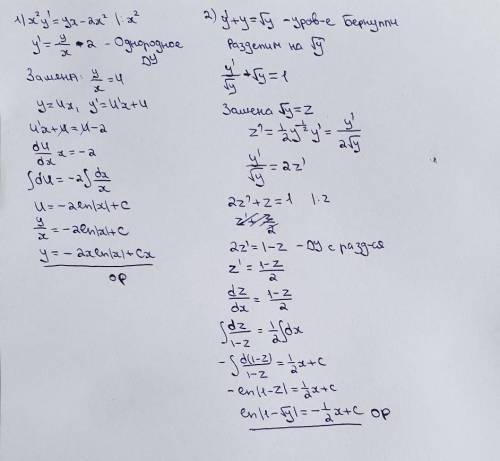 1) x²y' = yx - 2x² |: x²
y' = y/x - 2 - Однородное
ДУ
Замена: y/x = u
y = ux, y' = u'x + u
u'x + u = u - 2
du/dx x = -2
∫du = -2∫dx/x
u = -2ln|x| + C
y/x = -2ln|x| + C
y = -2xln|x| + Cx
ОР
2) y' + y = √y - уров-е Бернулли
Разделим на √y
y'/√y + √y = 1
Замена √y = z
z' = 1/2 y^(-1/2) y' = y'/(2√y)
y'/√y = 2z'
2z' + z = 1 |: 2
2z' = 1 - z - ДУ с разд-ся
z' = (1-z)/2
dz/dx = (1-z)/2
∫dz/(1-z) = 1/2 ∫dx
-∫d(1-z)/(1-z) = 1/2 x + C
-ln|1-z| = 1/2 x + C
ln|1-√y| = -1/2 x + C ОР